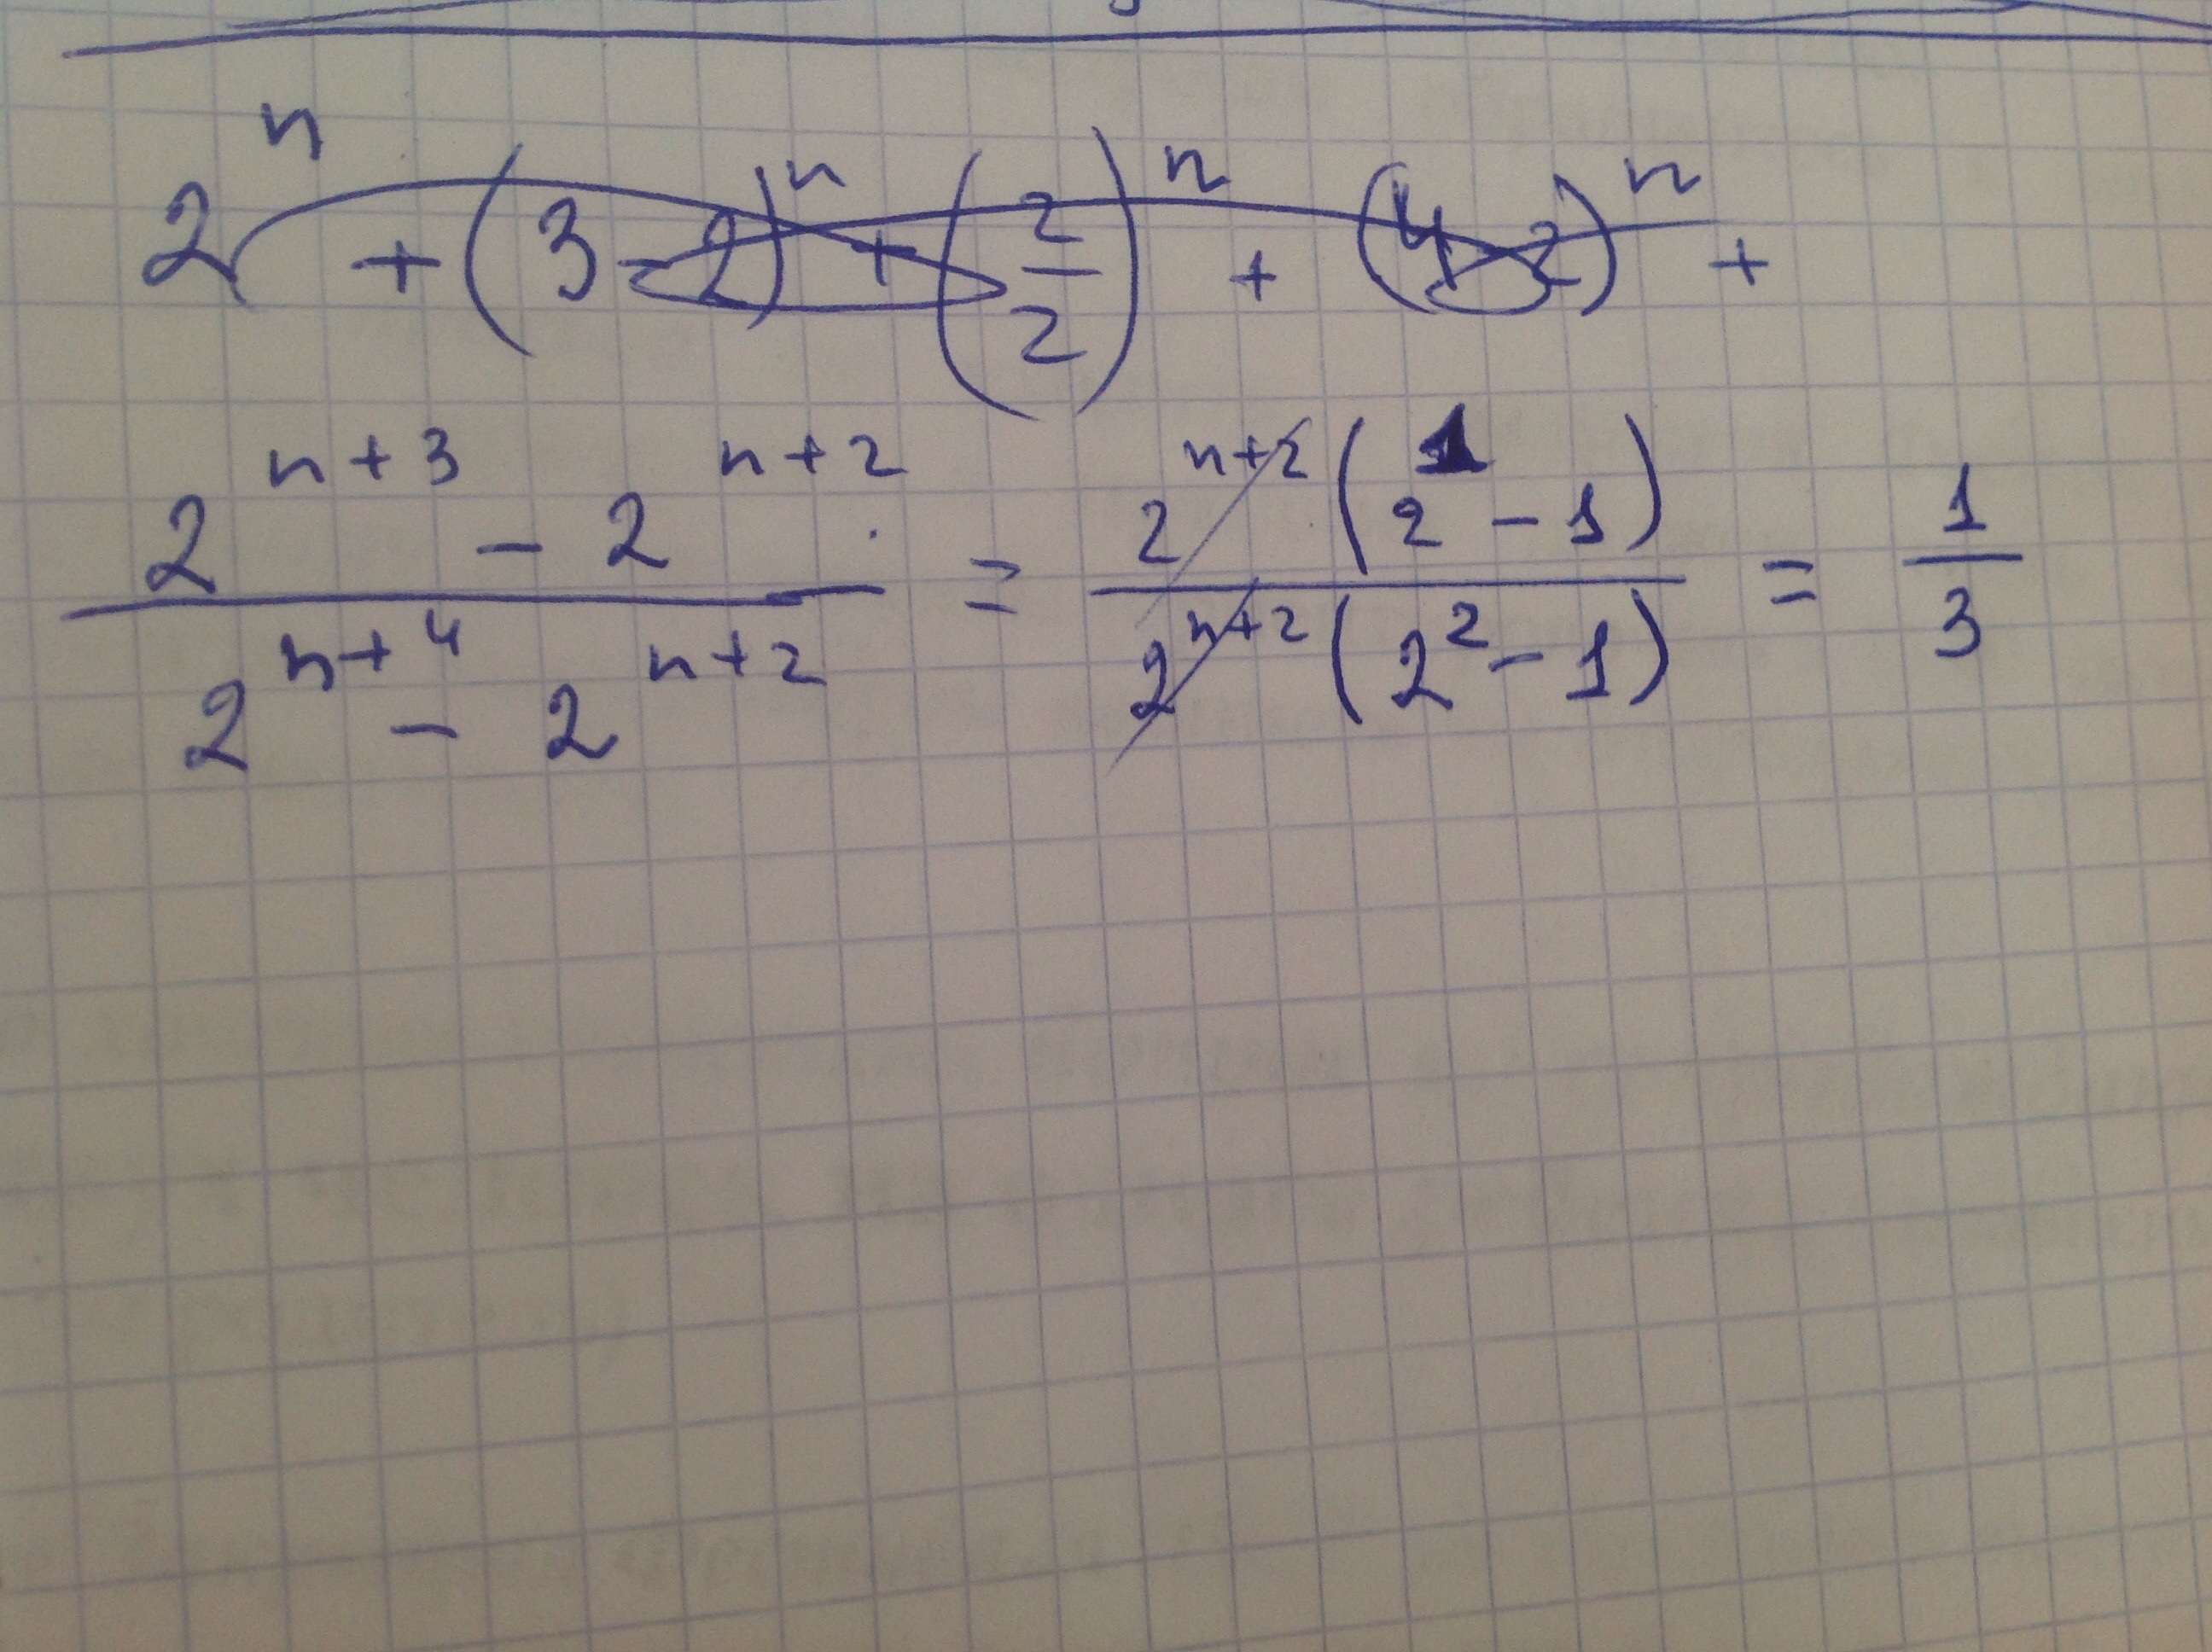 2^n + (3 - 2)^n + (2/2)^n + (4 2)^n +
(2^{n+3} - 2^{n+2}) / (2^{n+4} - 2^{n+2}) = (2^{n+2} (2^1 - 1)) / (2^{n+2} (2^2 - 1)) = 1/3